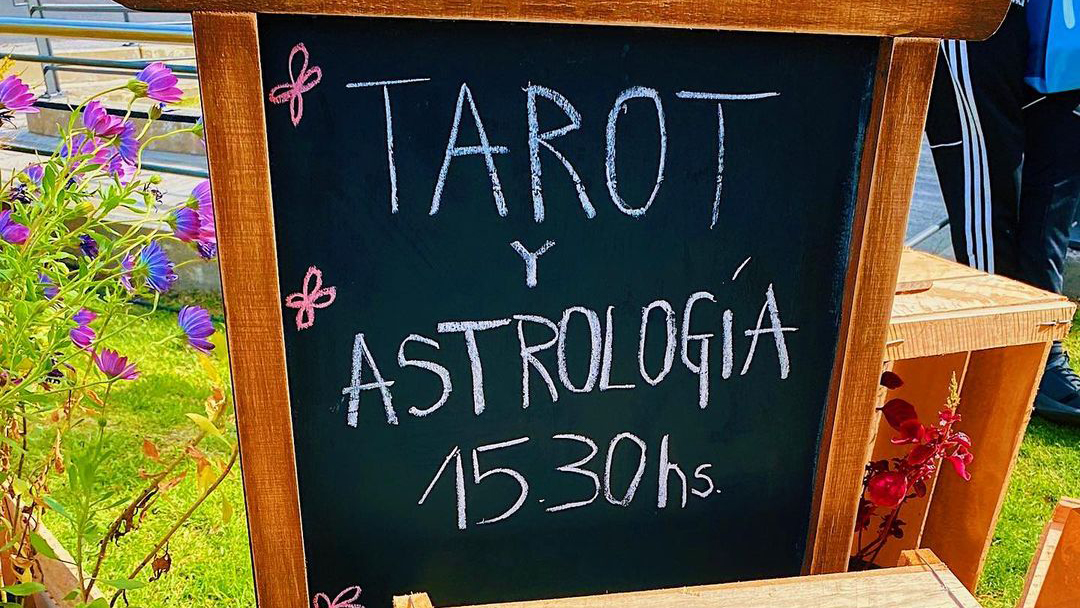 TAROT
Y
ASTROLOGÍA
15.30hs.